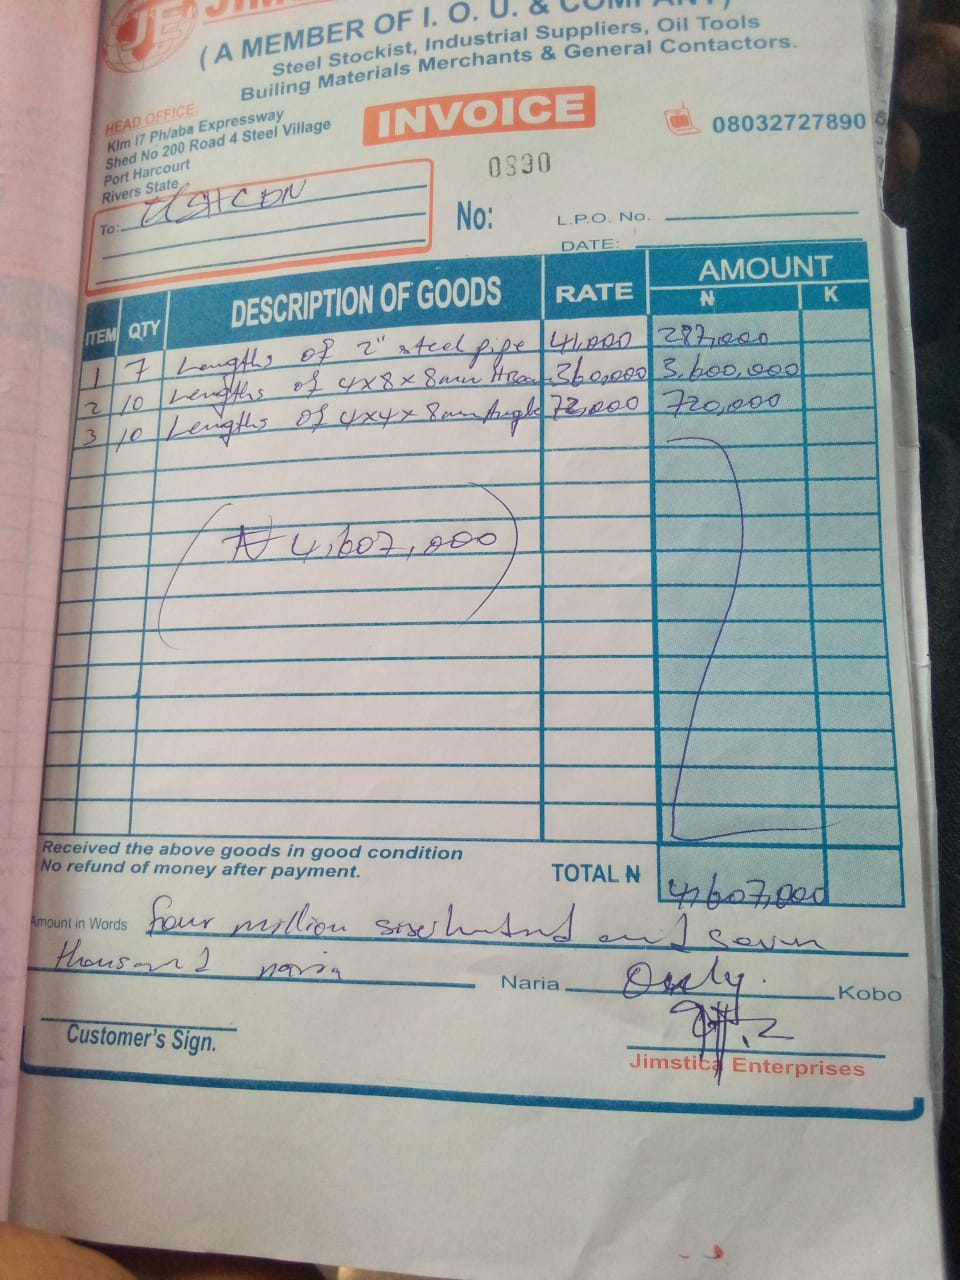 JE
(A MEMBER OF I. O. U. & COMPANY)
Steel Stockist, Industrial Suppliers, Oil Tools
Builing Materials Merchants & General Contactors.
HEAD OFFICE:
Klm 17 Ph/aba Expressway
Shed No 200 Road 4 Steel Village
Port Harcourt
Rivers State
INVOICE
08032727890
0390
To:
No:
L.P.O. No.
DATE:
ITEM QTY DESCRIPTION OF GOODS RATE AMOUNT
₦ K
1 7 Lengths of 2" steel pipe 41,000 287,000
2 10 Lengths of 4x8x8mm 360,000 3,600,000
3 10 Lengths of 4x4x8mm Angle 72,000 720,000
₦ 4,607,000
Received the above goods in good condition
No refund of money after payment.
TOTAL ₦ 4,607,000
Amount in Words four million six hundred and seven
thousand naira Naria Only. Kobo
Customer's Sign.
Jimstica Enterprises